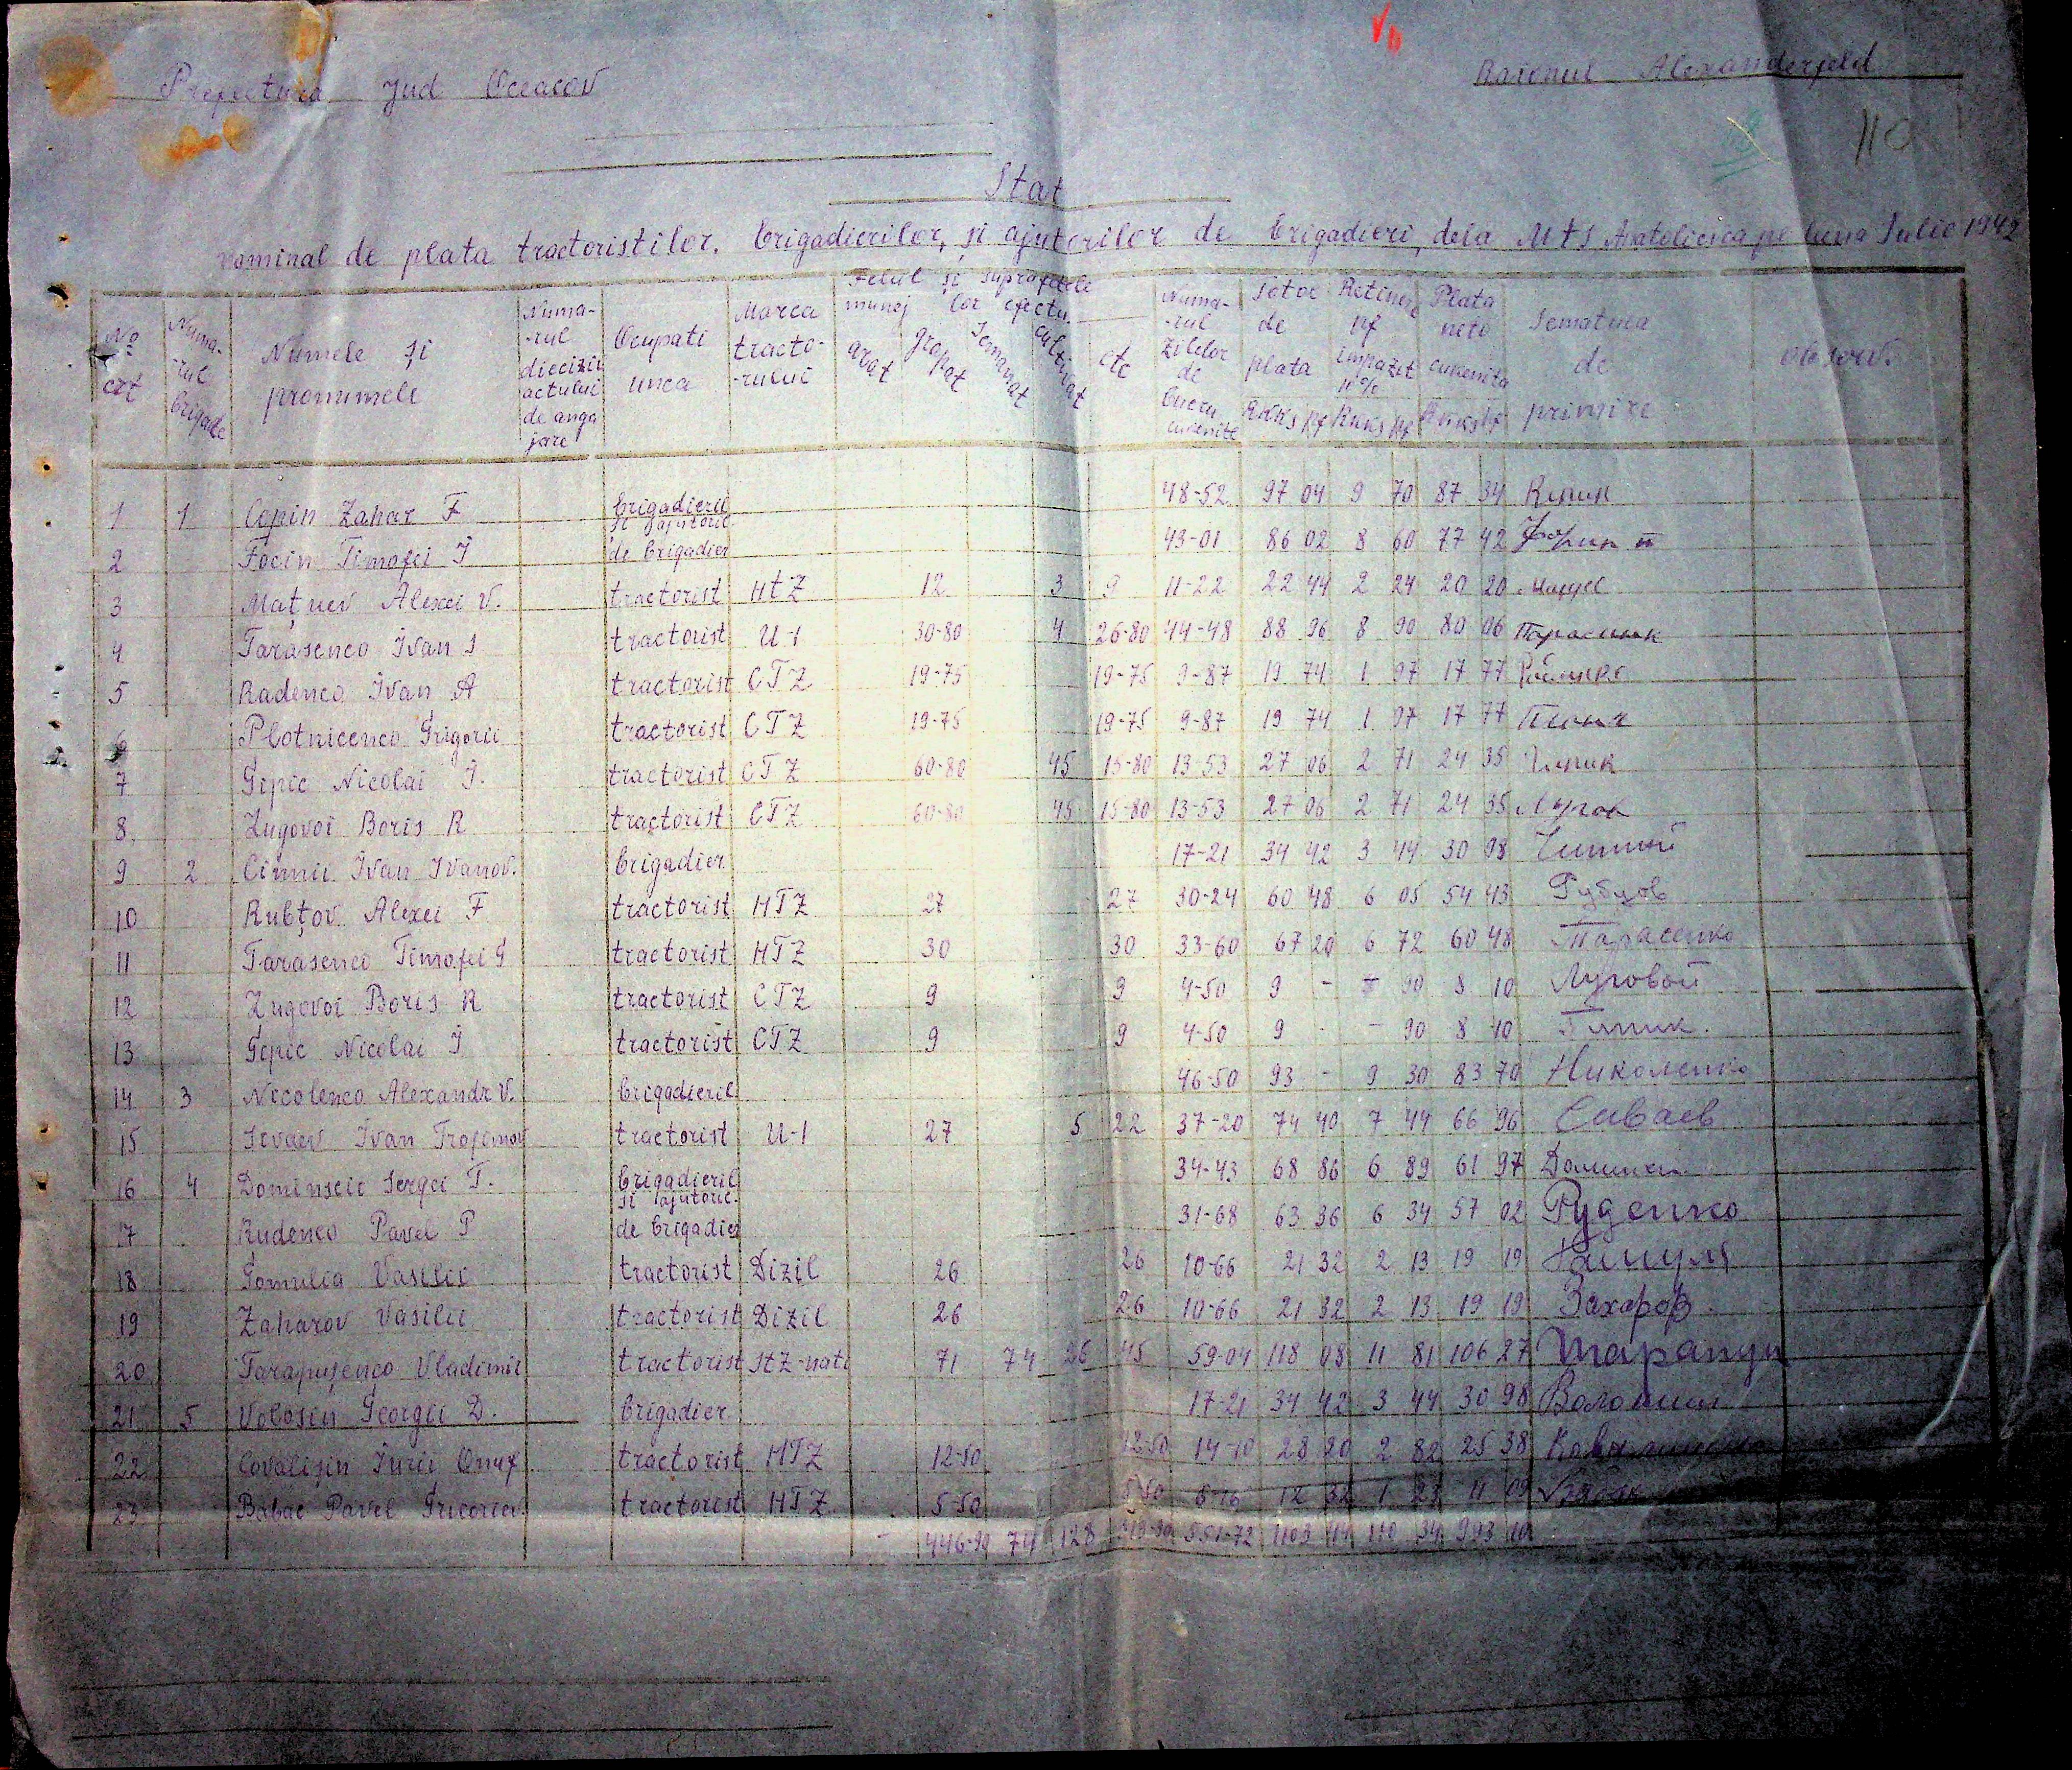 Prefectura Jud Oceacov
Raionul Alexanderfeld
110
Stat
nominal de plata tractoristilor, brigadierilor, și ajutorilor de brigadieri, dela MTS Anatolievca pe luna Iulie 1942
No crt | Numa-rul brigade | Numele și pronumele | Numa-rul dieciziii actului de anga jare | Ocupati unea | Marca tracto-rului | Felul și suprafetele muncilor efectu. | arat | grapat | Semanat | cultivat | etc | Numa-rul zilelor de lucru cuvenite | Totol de plata Rkks pf | Retinere pf impozit 10% Rkks pf | Plata neto cuvenita Rkks pf | Sematura de primire | observ.
1 1 Cepin Zahar F brigadieril 48-52 97 04 9 70 87 34 Кепин
2 Focin Timofei I si ajutoril de brigadier 43-01 86 02 8 60 77 42
3 Mațuev Alexei V. tractorist HtZ 12 3 9 11-22 22 44 2 24 20 20
4 Tarasenco Ivan S tractorist U-1 30-80 4 26-80 44-48 88 96 8 90 80 06 Тарасенк
5 Radenco Ivan A tractorist CTZ 19-75 19-75 9-87 19 74 1 97 17 77
6 Plotnicenco Grigorii tractorist CTZ 19-75 19-75 9-87 19 74 1 97 17 77
7 Gepic Nicolai I. tractorist CTZ 60-80 45 15-80 13-53 27 06 2 71 24 35 Гипик
8 Zugovoi Boris R tractorist CTZ 60-80 45 15-80 13-53 27 06 2 71 24 35 Лугов
9 2 Cimii Ivan Ivanov. brigadier 17-21 34 42 3 44 30 98
10 Rubțov Alexei F tractorist HTZ 27 27 30-24 60 48 6 05 54 43 Рубцов
11 Tarasenco Timofei G tractorist HTZ 30 30 33-60 67 20 6 72 60 48 Тарасенко
12 Zugovoi Boris R tractorist CTZ 9 9 4-50 9 - - 90 8 10 Луговой
13 Gepic Nicolai I tractorist CTZ 9 9 4-50 9 - - 90 8 10 Гипик.
14 3 Nicolenco Alexandr V. brigadieril 46-50 93 - 9 30 83 70 Николенко
15 Sevaev Ivan Trofimov tractorist U-1 27 5 22 37-20 74 40 7 44 66 96 Сиваев
16 4 Dominscii Sergei T. brigadieril 34-43 68 86 6 89 61 97
17 Rudenco Pavel P si ajutoril. de brigadier 31-68 63 36 6 34 57 02 Руденко
18 Gomulea Vasilii tractorist Dizil 26 26 10-66 21 32 2 13 19 19
19 Zaharov Vasilii tractorist Dizil 26 26 10-66 21 32 2 13 19 19 Захаров
20 Tarapușenco Vladimir tractorist StZ-nati 71 74 26 45 59-04 118 08 11 81 106 27 Тарапун
21 5 Volosin Georgii D. brigadier 17-21 34 42 3 44 30 98 Волошин
22 Covalișin Iurii Onuf tractorist HTZ 12-50 12-50 14-10 28 20 2 82 25 38
23 Babac Pavel Gricoriev. tractorist HTZ 5-50 5-50 6-16 12 32 1 23 11 09 Бабак
446-90 74 128 319-90 551-72 1103 44 110 34 993 10